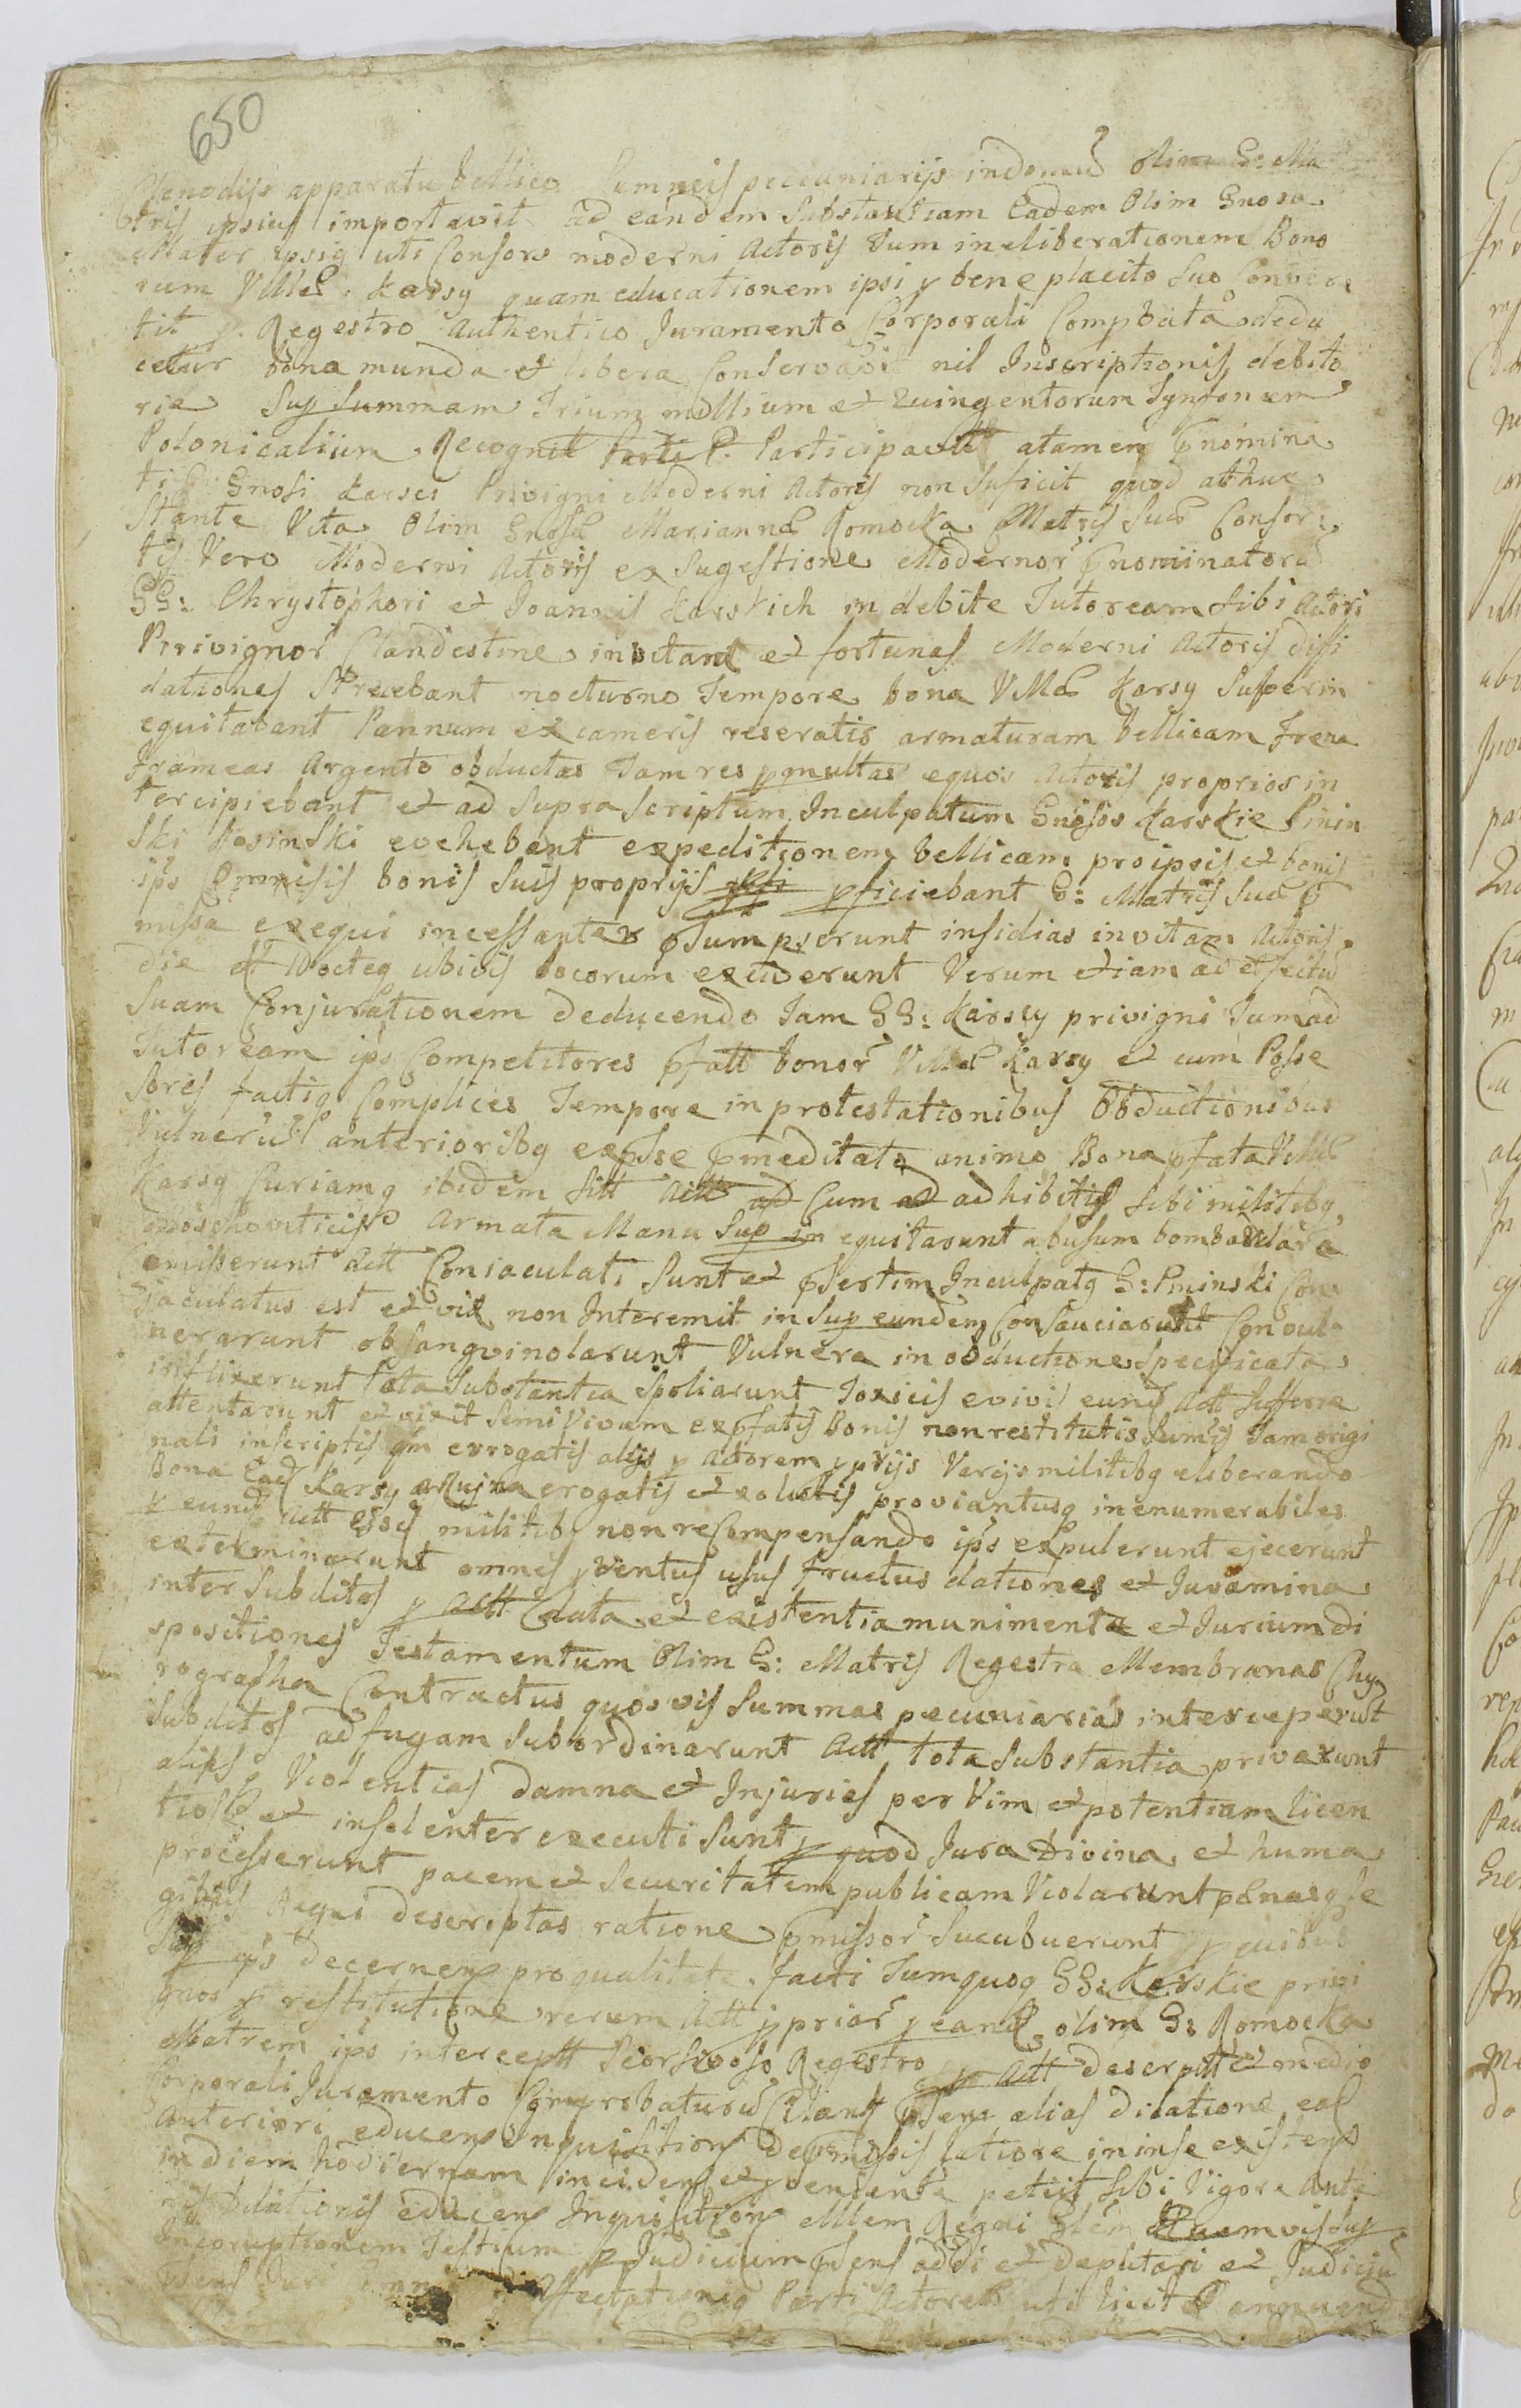 650
Clenodijs apparatu bellico Summis pecuniarijs in domū olim G: Ma
tris ipsius importavit ad eandem Substantiam Eadem Olim Gnosa
Mater ipsiq uti Consors moderni Actoris Tum in eliberationem Bono
rum Villæ Karsy quam educationem ipsi p bene placito Suo Conver
tit p Regestro Authentico Juramento Corporali Compbata dedu
cetur bona munda et libera Conservavit nil Inscriptionis debito
ria Sup Summam Trium millium et Quingentorum Tynfonum
Polonicalium Recognit Parti P. Participavit atamen
ti G Gnosi Karsci Privigni Moderni Actoris non Suficit quod athuc
Stante Vita Olim Gnosæ Mariannæ Romocka Matris Suæ Consor
tis Vero Moderni Actoris ex Sugestione Modernor pnominator
GG: Chrystophori et Joannis Karskich indebite Tutoream Sibi Actori
Privignor Clandestine invitam et fortunas Moderni Actoris diffi
dationes Struebant nocturno Tempore bona Villæ Karsy Superin
equitabant Pannum ex cameris reseratis armaturam bellicam Frena
Frameas Argento obductas Tam res pmultas equos Actoris proprios in
tercipiebant et ad Supra Scriptum Inculpatum Gnosos Karskie Pinin
ski Rosinski evehebant expeditionem bellicam pro ipsis et bonis
ips omisis bonis Suis proprijs pficiebant G: Matris Suæ p
missa exequi incessanter psumpserunt insidias in vitam Actoris
die et Nocteq ubivis locorum exciderunt Verum etiam ad effectū
Suam Conjurationem deducendo Tam GG: Karscy privigni Tum ad
Tutoream ips Competitores pfatt bonor Villæ Karsy et cum Posse
sores factiq Complices Tempore in protestationibus Obductionibus
Vulnerū anterioribq expsse pmeditato animo Bona pfata Villæ
Karsy Curiamq ibidem Sitt Actt ad Cum ad adhibitis Sibi militibq
Moschoviticis Armata Manu Sup in equitarunt abusum bombardarū
emisserunt Actt Coniaculati Sunt et psertim Inculpatq G: Pininski Con
jaculatus est et vix non Interemit in Sup eundem Consauciarunt Convul
nerarunt obsangvinolarunt Vulnera in obductione Specificata
inflixerunt tota Substantia Spoliarunt Toxicis e vivis eund Actt
attentarunt et vixit Semivivum ex pfatis Bonis non restitutis Sumis Tam origi
nali inscriptis qm erogatis alijs p Actorem pprijs Varijs militibq eliberando
Bona Ead Karsy a Rujna erogatis et exolutis proviantusq inenumerabiles
p eund Actt militib non reCompensando ips expulerunt ejecerunt
exterminarunt omnes pventus usus fructus dationes et Juvamina
inter Subditos p Actt data et existentia munimenta et Jurium di
spositiones Testamentum Olim G: Matris Regestra Membranas Chy
rographa Contractus quosvis Summas pecuniarias interceperunt
Subditos ad fugam Subordinarunt Actt tota Substantia privarunt
aliasq Violentias damna et Injurias per Vim et potentiam licen
tiose et insolenter executi Sunt p quod Jura Divina et huma
processerunt pacem et Securitatem publicam Violarunt pænasq le
gibus Regni descriptas ratione pmissor Sucubuerunt p quibus
Sup ips decernens pro qualitate facti Tum quoq GG: Karskie privi
gnos p restitutione rerum Actt pprior p eand olim G: Romocka
Matrem ips interceptt Seorsivoso Regestro p Actt descript et medio
Corporali Juramento Comprobaturū Citant psens alias dilatione ex
Anteriori educens Inquisition de pmissis latiore in inse existens
in diem hodiernam incidens et pvenienta petiit Sibi Vigore Ante
ris Dilationis educens Inquisition Mlem Regni Glem Quemvis Sup
Incoruptionem Testium p Judicium psens addi et deputari et Judiciū
psens affectationes Parti Actoreæ uti licit